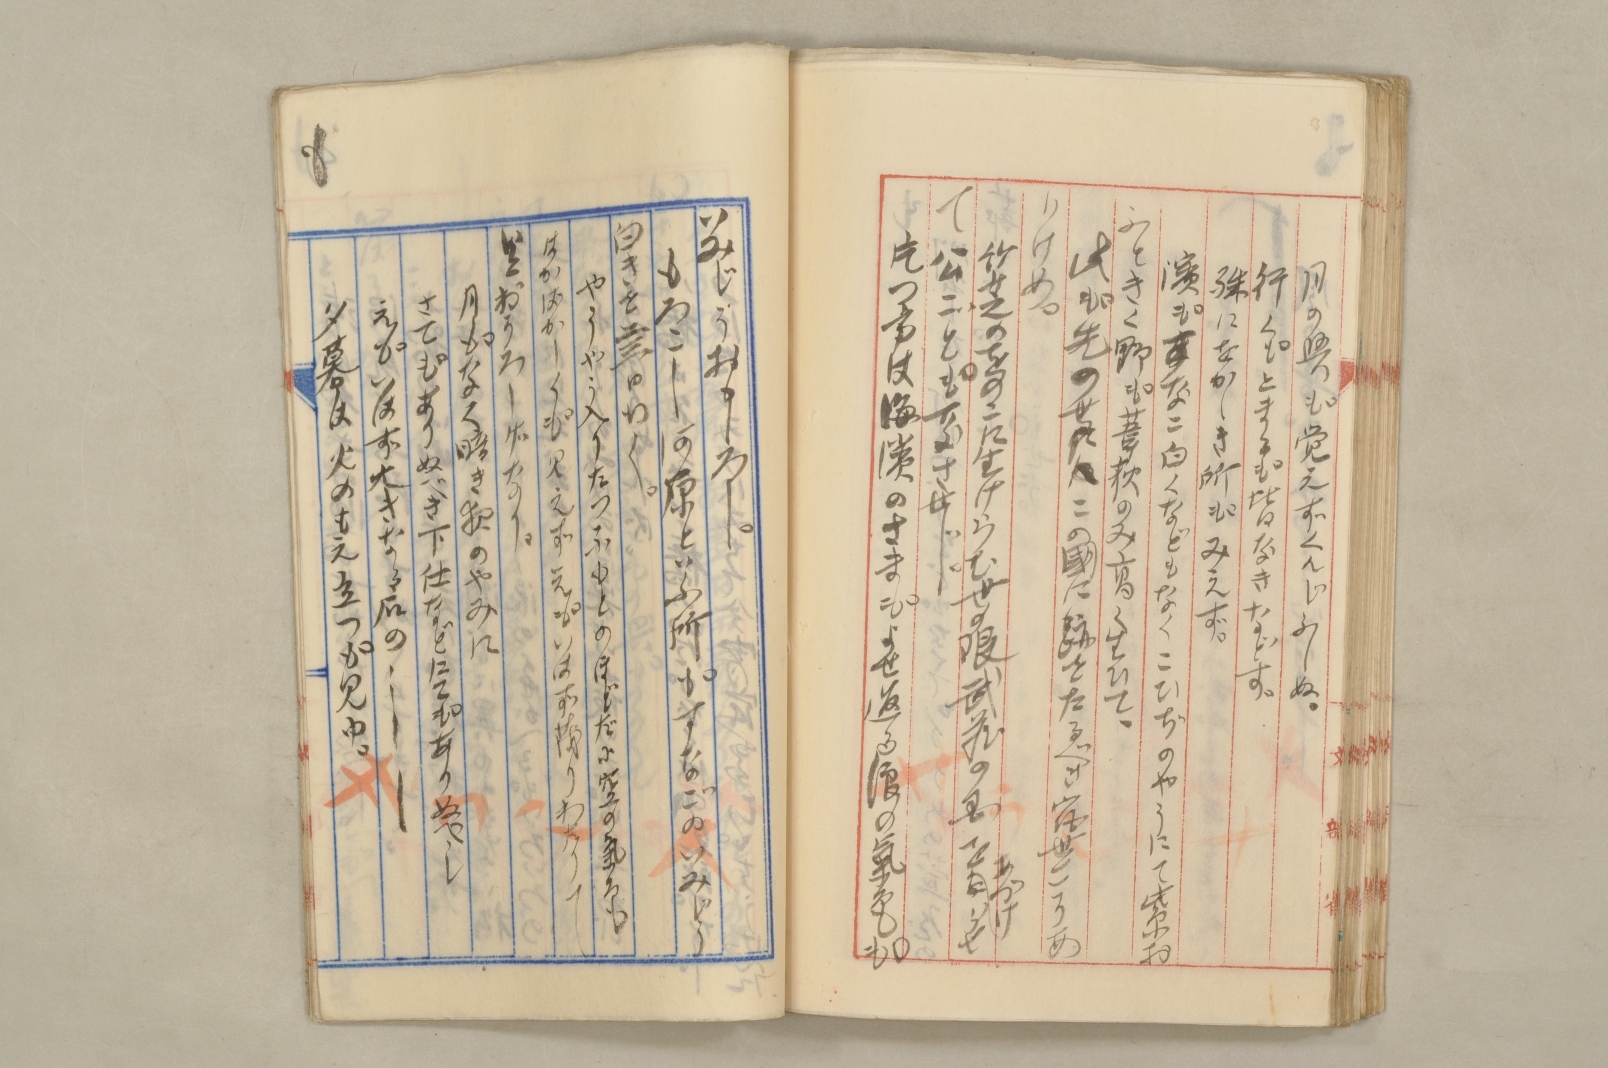 月の興も覚えずくんじふしぬ。
行くもとまるも皆なきなどす。
殊にをかしき所もみえず。
濱もすなご白くなどもなくこひぢのやうにて紫お
ふときく野も葦荻のみ高く生ひて、
此も先の世にこの國に跡をたるべき宿世こそあ
りけめ。
竹芝のをのこに生けらむ世の限武蔵の国をあづけ
て公ごとも なさせじ。
片つ方は海濱のさまもよせ返る浪の氣色も
いみじうおもしろし。
もろこし河原といふ所もすなごのいみじう
白きを二三日ゆく。
やうやう入りたつふもとのほどだに空の氣色
はかばかしくも見えずえもいはず茂りわたりて
おそろしげなり。
月もなく暗き夜のやみに
さてもありぬべき下仕などにてもありぬべし
えもいはず大きなる石の
夕暮は火のもえ立つも見ゆ。